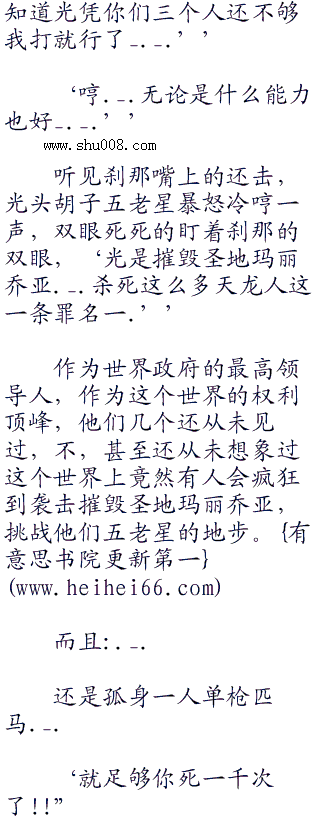 知道光凭你们三个人还不够
我打就行了_._.’’
‘哼._.无论是什么能力
也好_._.’’
www.shu008.com
听见刹那嘴上的还击，
光头胡子五老星暴怒冷哼一
声，双眼死死的盯着刹那的
双眼，‘光是摧毁圣地玛丽
乔亚._.杀死这么多天龙人这
一条罪名一.’’
作为世界政府的最高领
导人，作为这个世界的权利
顶峰，他们几个还从未见
过，不，甚至还从未想象过
这个世界上竟然有人会疯狂
到袭击摧毁圣地玛丽乔亚，
挑战他们五老星的地步。{有
意思书院更新第一}
(www.heihei66.com)
而且:._.
还是孤身一人单枪匹
马._.
‘就足够你死一千次
了!!”